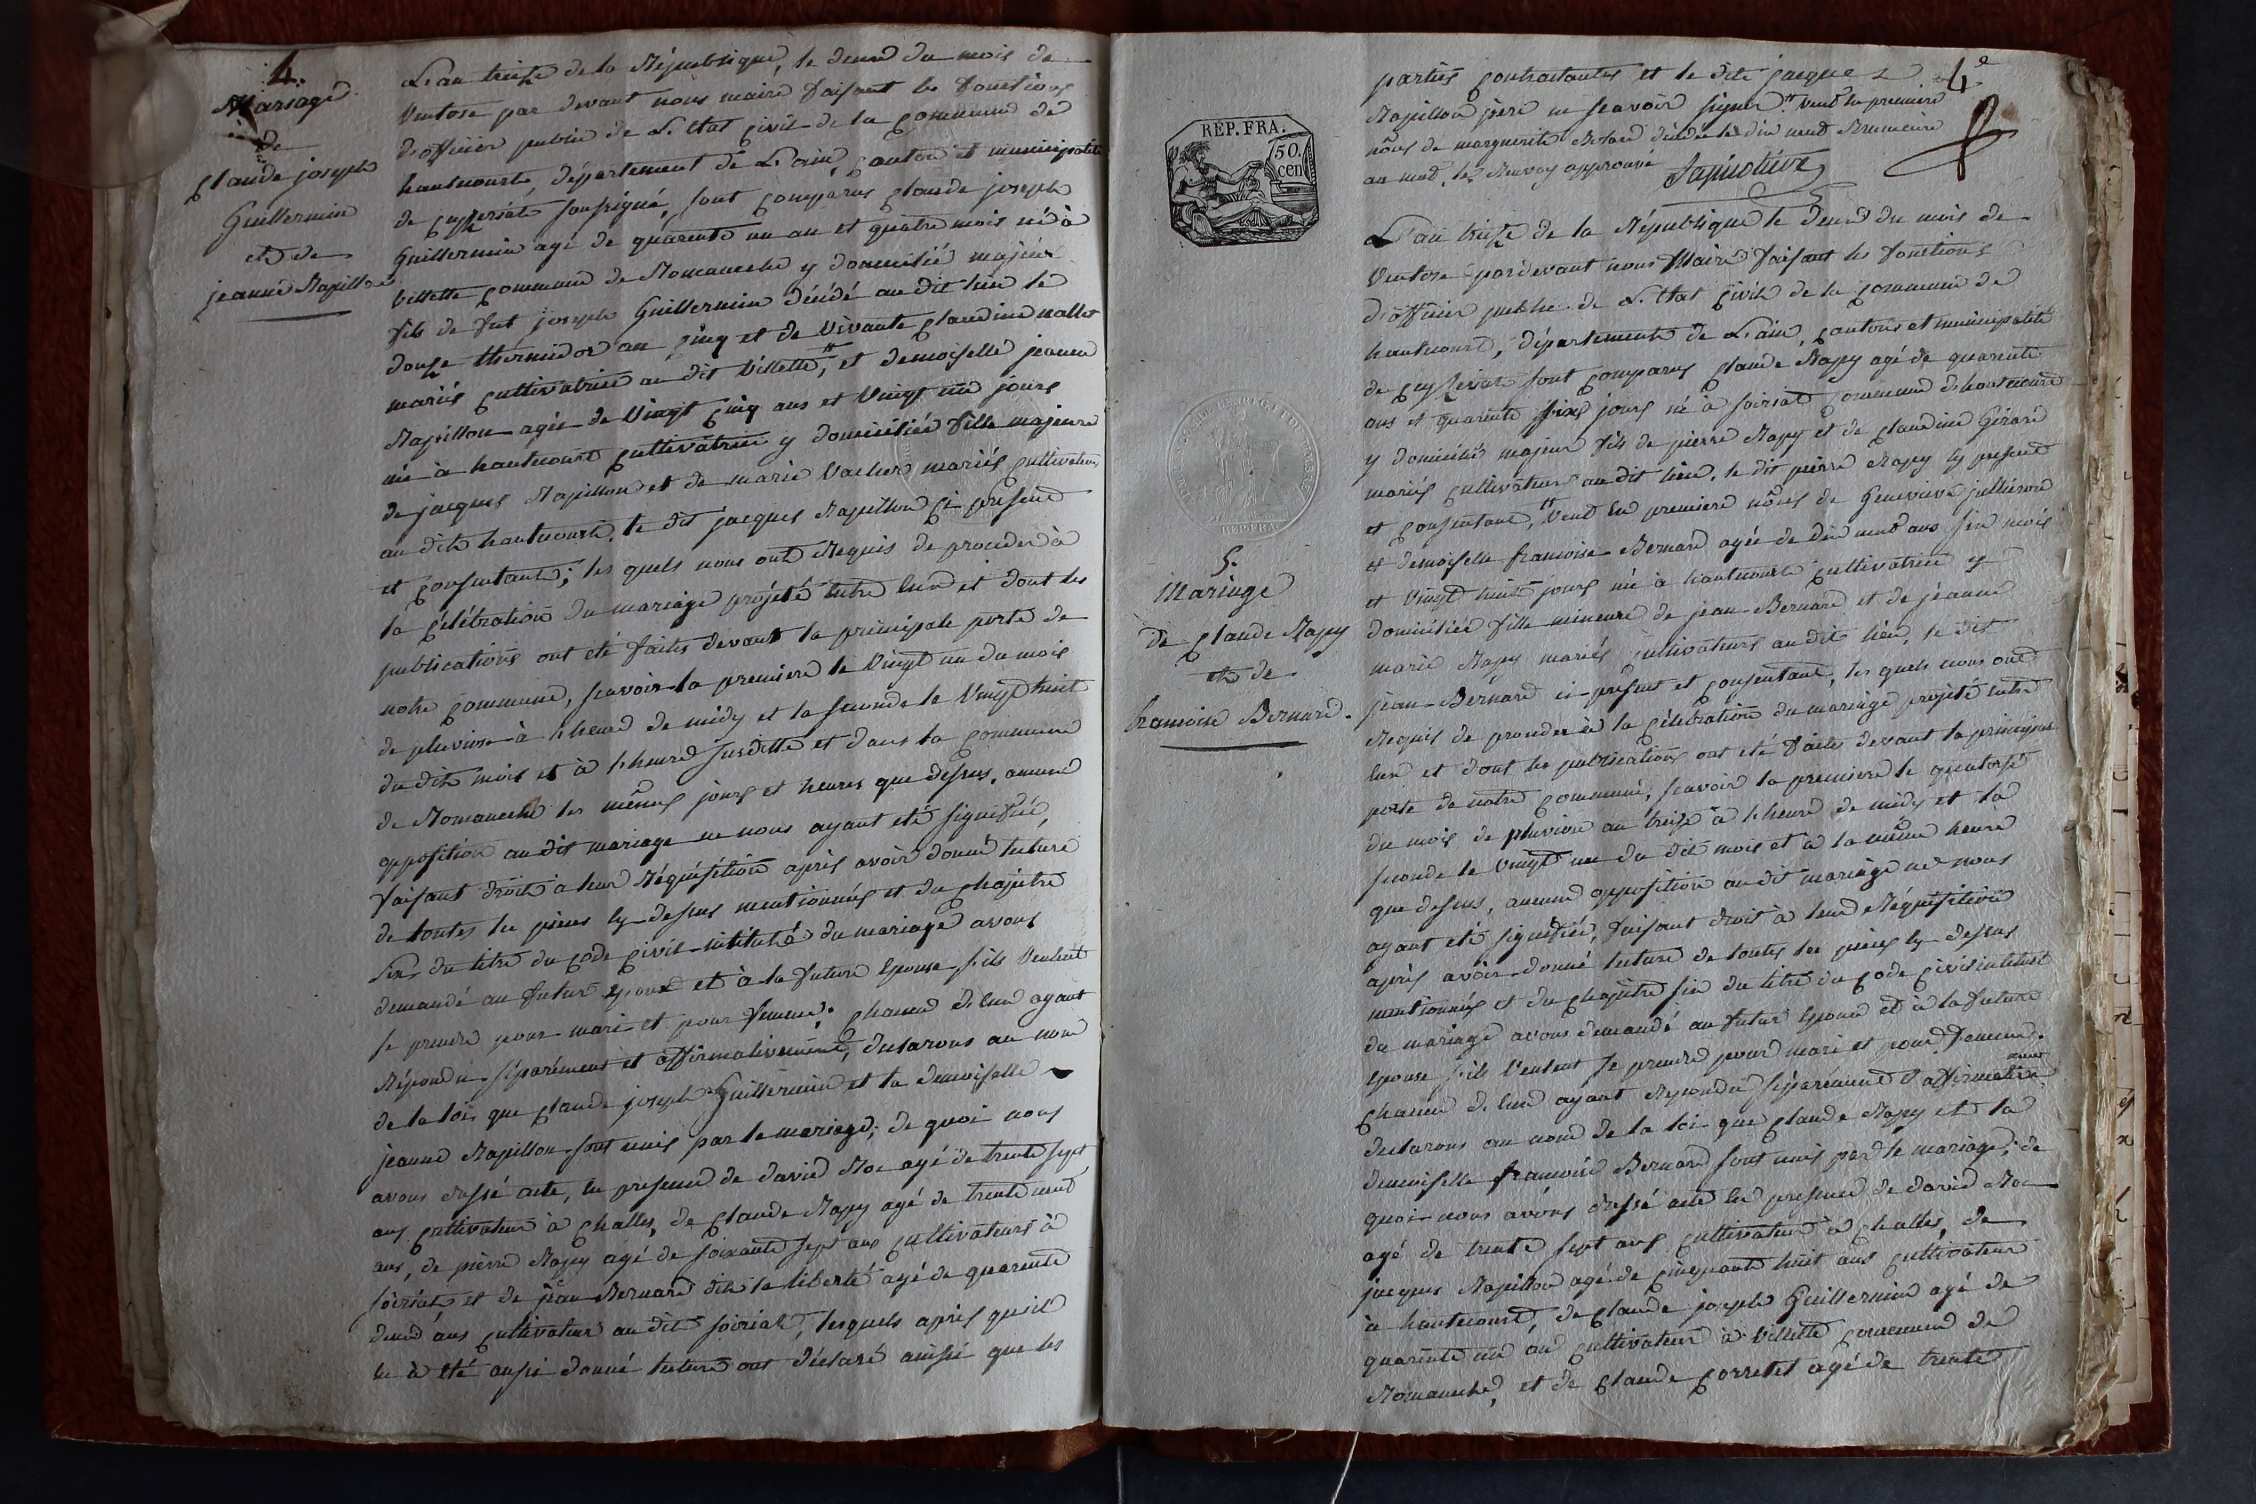 4.
Mariage
de
Claude joseph
Guillermin
et de
jeanne Rapillon
L'an treize de la République, le deux du mois de
Ventose par devant nous maire faisant les fonctions
d'officier public de L'Etat Civil de la Commune de
hautecourt, département de L'ain, Canton et municipalité
de Ceyzeriat soussigné, sont Comparus Claude joseph
Guillermin agé de quarente un an et quatre mois né à
Villette Commune de Romaneche y domicilié majeur
fils de fut joseph Guillermin décédé au dit lieu le
douze thermidor an Cinq et de Vivante Claudine
mariés Cultivatrice au dit Villette, # et demoiselle jeanne
Rapillon agée de Vingt Cinq ans et Vingt un jours
née à hautecourt Cultivatrice y domiciliée fille majeure
de jacques Rapillon et de marie Vacher mariés Cultivateurs
au dit hautecourt, le dit jacques Rapillon Ci present
et Consentant; les quels nous ont Requis de proceder à
la Célébration du mariage projeté entre eux et dont les
publications ont été faites devant la principale porte de
notre Commune, scavoir la premiere le Vingt un du mois
de pluviose à l'heure de midy et la seconde le Vingt huit
du dit mois et à l'heure susditte et dans la Commune
de Romaneche les mêmes jours et heures que dessus, aucune
opposition au dit mariage ne nous ayant été signifiée,
faisant droit à leur Réquisition après avoir donné lecture
de toutes les pieces cy dessus mentionnées et du Chapitre
Six du titre du Code Civil intitulé du mariage avons
demandé au futur Epoux et à la future Epouse s'ils Veulent
se prendre pour mari et pour femme. Chacun d'eux ayant
Répondu séparément et affirmativement, declarons au nom
de la loi, que Claude joseph Guillermin et la demoiselle
jeanne Rapillon sont unis par le mariage; de quoi nous
avons dressé acte, en presence de david Roc agé de trente sept
ans Cultivateur à Challes, de Claude Rapy agé de trente neuf
ans, de pierre Rapy agé de soixante sept ans Cultivateurs à
soiriat et de jean Bernard dit la liberté agé de quarente
deux ans Cultivateur au dit soiriat, lesquels après qu'il
en à été aussi donné lecture ont déclaré ainsi que les
4e
parties Contractantes et le dit jacque
Rapillon père ne scavoir signer # Veuf en premiere
nôces de marguerite décédée le dix neuf Brumaire
an neuf, le Renvoy approuvé
REP. FRA.
50.
cen
REP. FRA.
5.
Mariage
de Claude Rapy
et de
francoise Bernard.
L'an treize de la République le deux du mois de
Ventose pardevant nous Maire faisant les fonctions
d'officier public de L'Etat Civil de la Commune de
hautecourt, département de L'ain, Canton et municipalité
de Ceyzeriat sont Comparus Claude Rapy agé de quarente
ans et quarente six jours né à soiriat Commune de hautecourt
y domicilié majeur fils de pierre Rapy et de Claudine Gérard
mariés Cultivateurs au dit lieu, le dit pierre Rapy Cy present
et Consentant, # Veuf en premiere nôces de Genevieve
et demoiselle francoise Bernard agée de dix neuf ans six mois
et Vingt huit jours née à hautecourt Cultivatrice y
domiciliée fille mineure de jean Bernard et de jeanne
marie Rapy mariés Cultivateurs au dit lieu, le dit
jean Bernard ci present et Consentant, les quels nous ont
Requis de proceder à la Célébration du mariage projeté entre
eux et dont les publications ont été faites devant la principale
porte de notre Commune, scavoir la premiere le quatorze
du mois de pluviose an treize à l'heure de midy et la
seconde le Vingt un du dit mois et à la même heure
que dessus, aucune opposition au dit mariage ne nous
ayant été signifiée, faisant droit à leur Réquisition
après avoir donné lecture de toutes les pieces cy dessus
mentionnées et du Chapitre six du titre du Code Civil intitulé
du mariage avons demandé au futur Epoux et à la future
Epouse s'ils Veulent se prendre pour mari et pour femme.
Chacun d'eux ayant Repondu séparement et affirmativement
declarons au nom de la loi que Claude Rapy et la
demoiselle francoise Bernard sont unis par le mariage; de
quoi nous avons dressé acte en presence de david Roc
agé de trente sept ans Cultivateur à Challes, de
jacques Rapillon agé de Cinquante huit ans Cultivateur
à hautecourt, de Claude joseph Guillermin agé de
quarente un an Cultivateur à Villette Commune de
Romaneche, et de Claude Corretet agé de trente